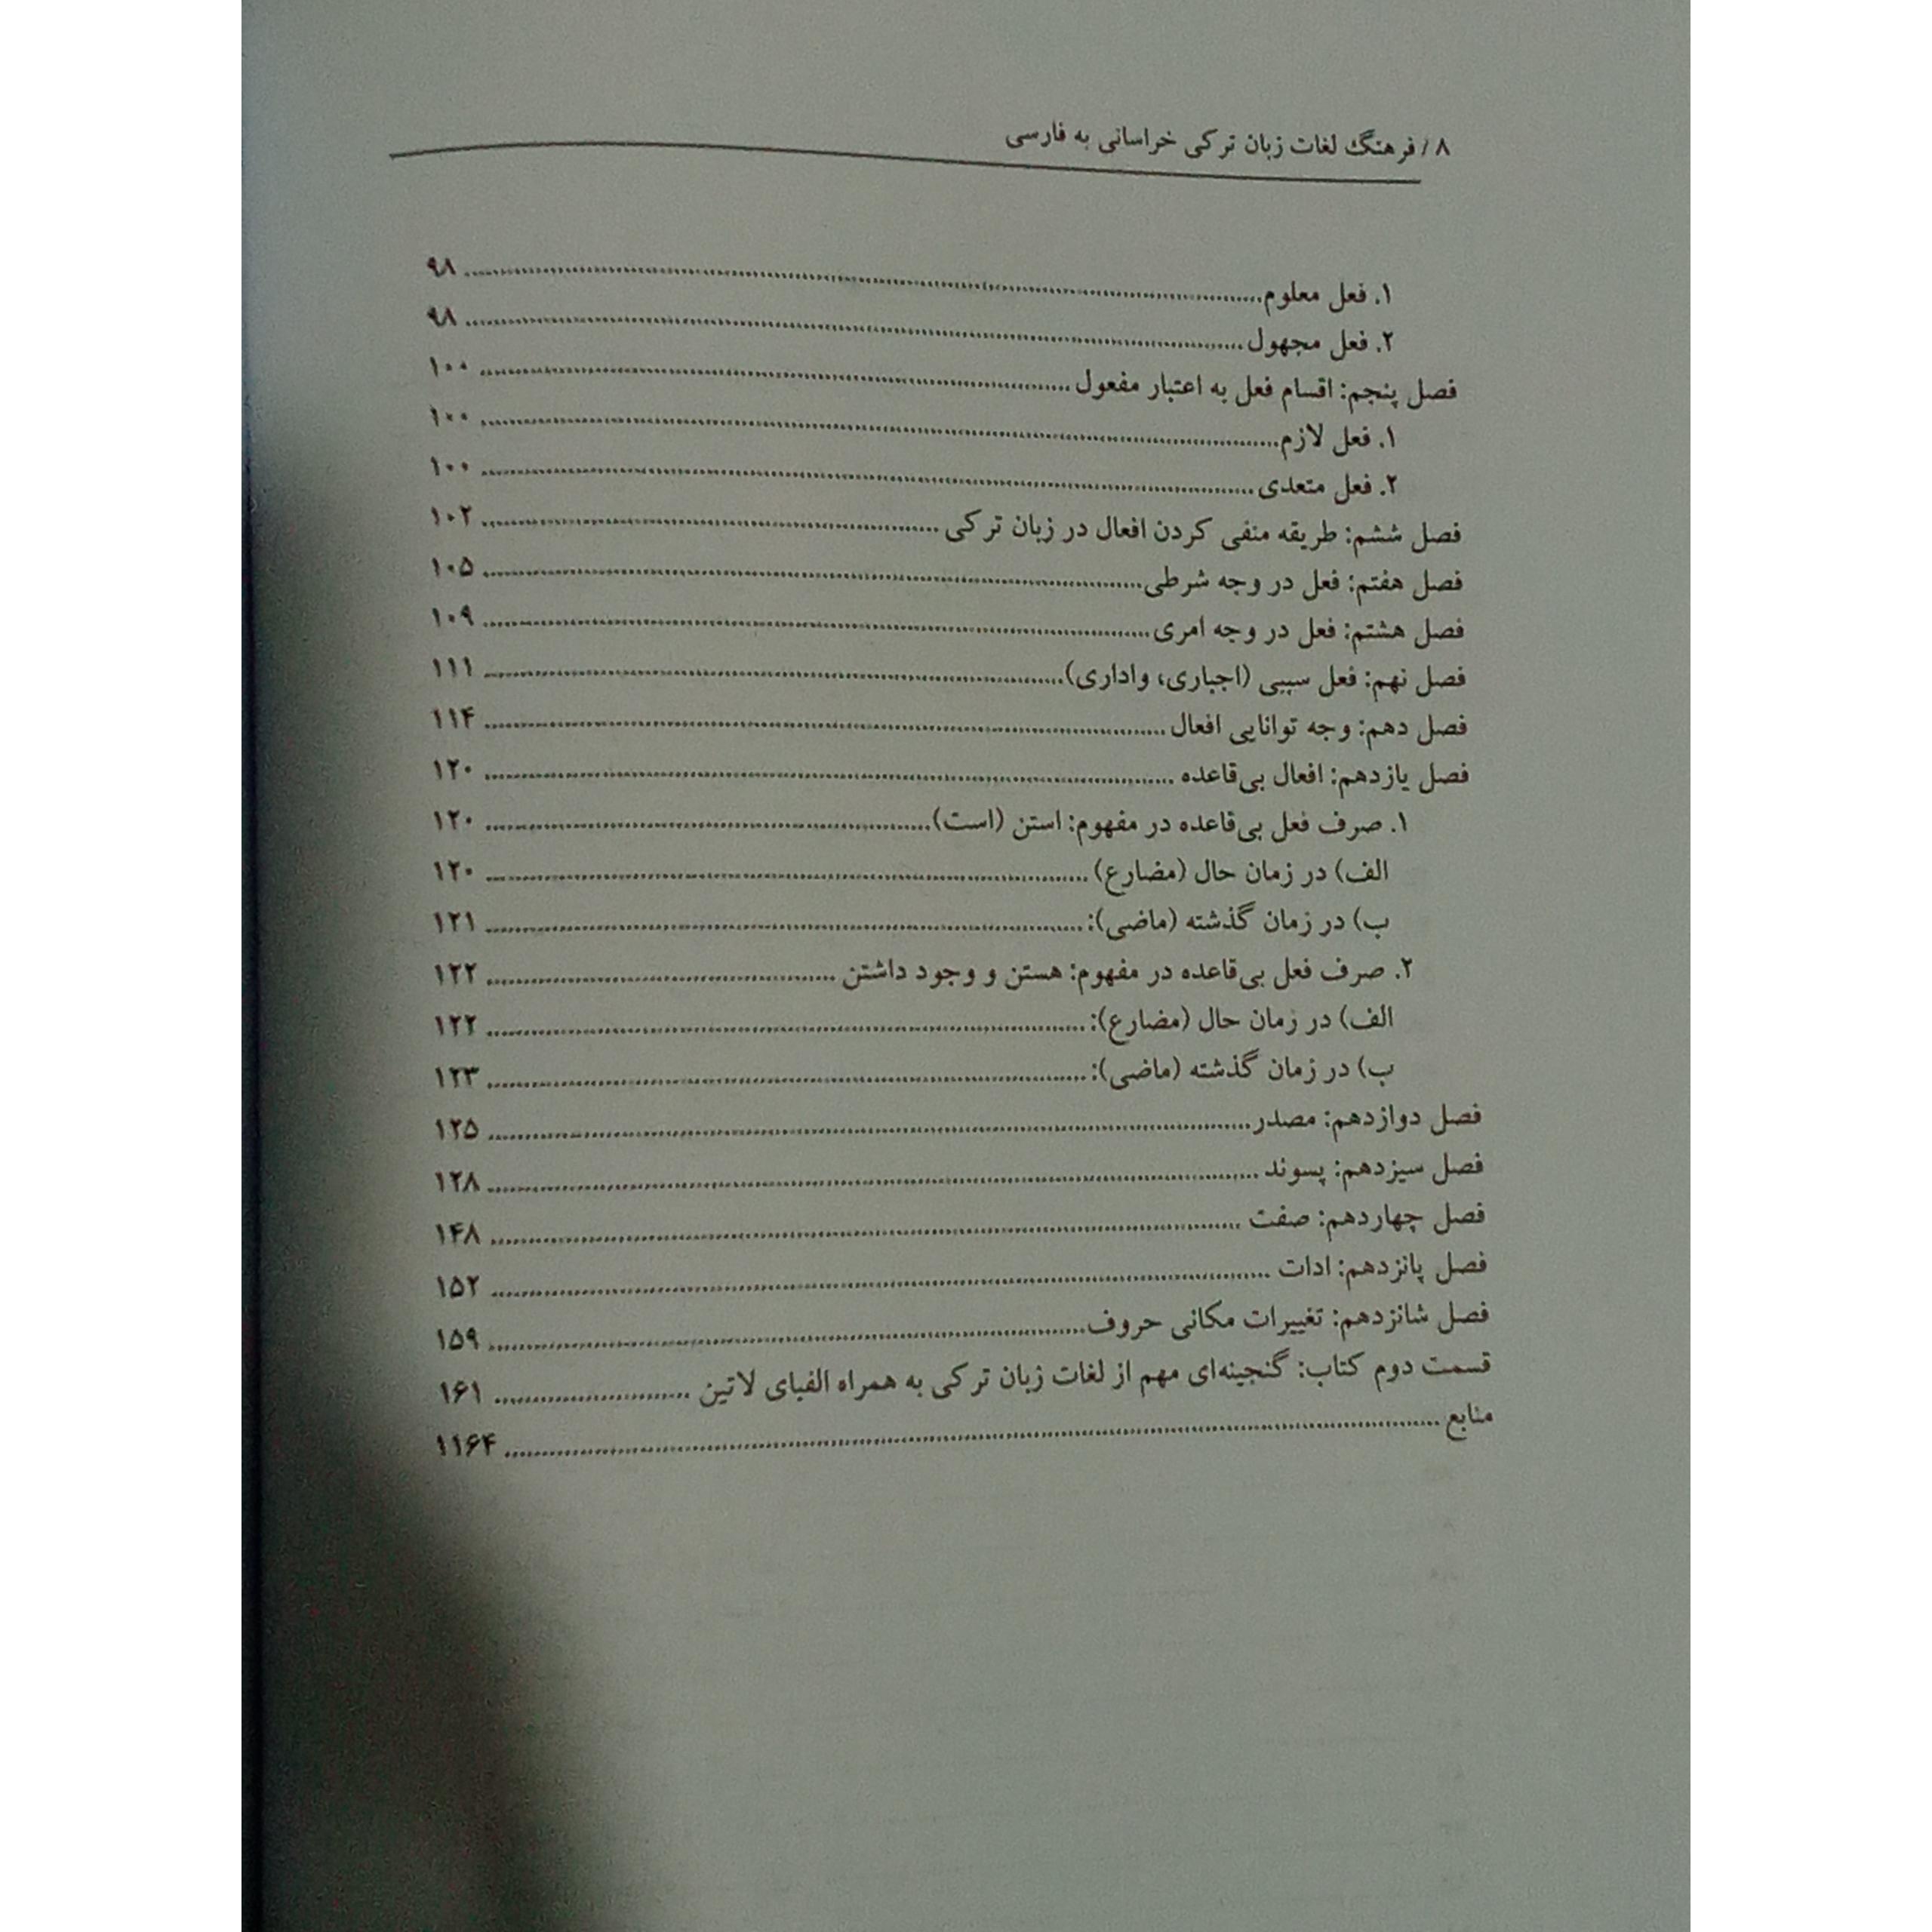 ۸ / فرهنگ لغات زبان ترکی خراسانی به فارسی
۱. فعل معلوم ........ ۹۸
۲. فعل مجهول ........ ۹۸
فصل پنجم: اقسام فعل به اعتبار مفعول ........ ۱۰۰
۱. فعل لازم ........ ۱۰۰
۲. فعل متعدی ........ ۱۰۰
فصل ششم: طریقه منفی کردن افعال در زبان ترکی ........ ۱۰۲
فصل هفتم: فعل در وجه شرطی ........ ۱۰۵
فصل هشتم: فعل در وجه امری ........ ۱۰۹
فصل نهم: فعل سببی (اجباری، واداری) ........ ۱۱۱
فصل دهم: وجه توانایی افعال ........ ۱۱۴
فصل یازدهم: افعال بی‌قاعده ........ ۱۲۰
۱. صرف فعل بی‌قاعده در مفهوم: استن (است) ........ ۱۲۰
الف) در زمان حال (مضارع) ........ ۱۲۰
ب) در زمان گذشته (ماضی): ........ ۱۲۱
۲. صرف فعل بی‌قاعده در مفهوم: هستن و وجود داشتن ........ ۱۲۲
الف) در زمان حال (مضارع): ........ ۱۲۲
ب) در زمان گذشته (ماضی): ........ ۱۲۳
فصل دوازدهم: مصدر ........ ۱۲۵
فصل سیزدهم: پسوند ........ ۱۲۸
فصل چهاردهم: صفت ........ ۱۴۸
فصل پانزدهم: ادات ........ ۱۵۲
فصل شانزدهم: تغییرات مکانی حروف ........ ۱۵۹
قسمت دوم کتاب: گنجینه‌ای مهم از لغات زبان ترکی به همراه الفبای لاتین ........ ۱۶۱
منابع ........ ۱۱۶۴